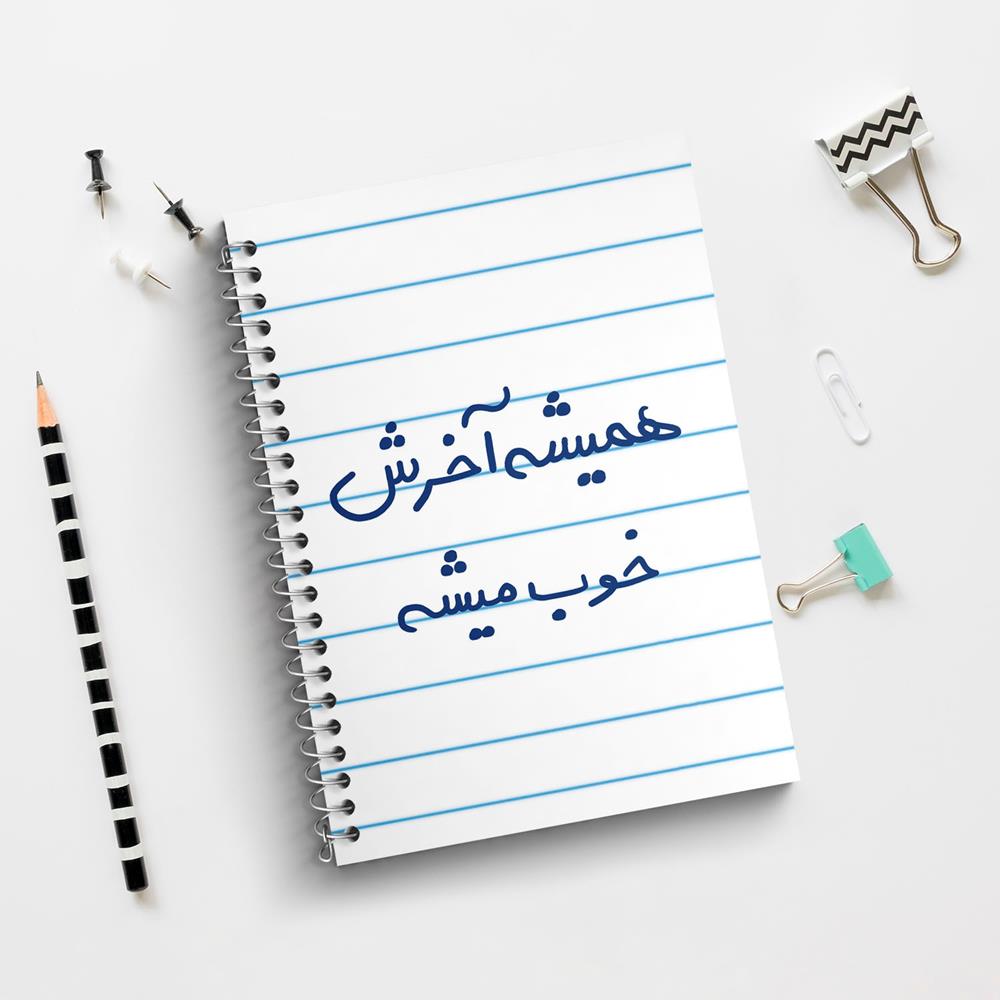 همیشه آخرش
خوب میشه